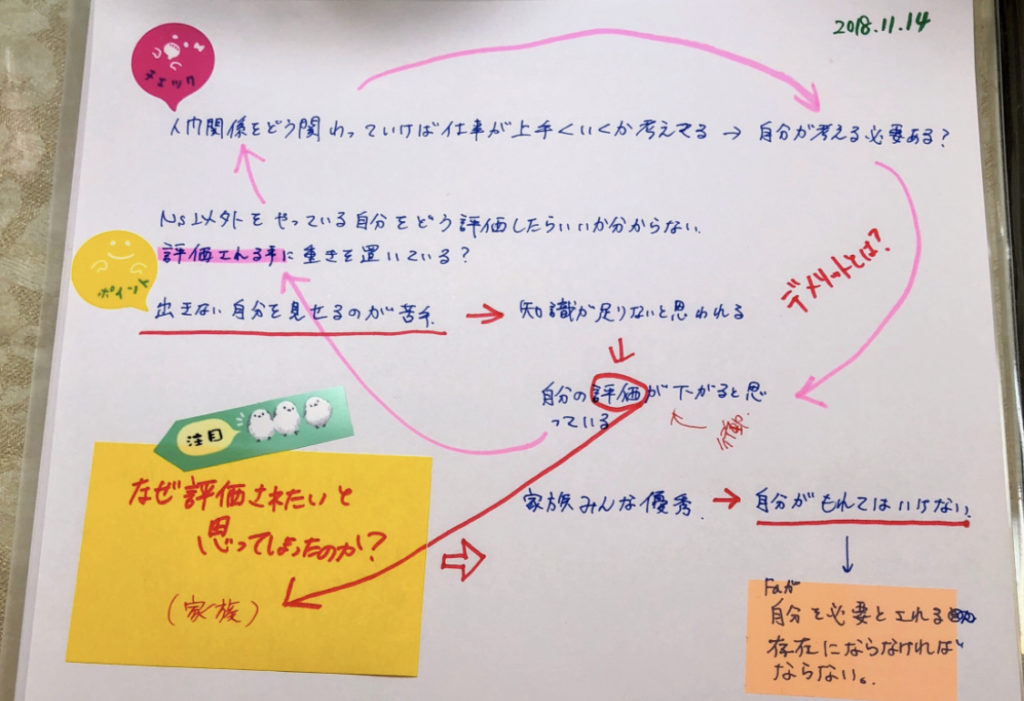 2018.11.14
チェック
人間関係をどう関わっていけば仕事が上手くいくか考えてる → 自分が考える必要ある?
Ns以外をやっている自分をどう評価したらいいか分からない.
評価される事に重きを置いている?
ポイント
デメリットとは?
出きない自分を見せるのが苦手. → 知識が足りないと思われる
自分の評価が下がると思
っている
注目
なぜ評価されたいと
思ってしまったのか?
(家族)
家族みんな優秀. → 自分がもれてはいけない.
Faが
自分を必要とされる
存在にならなければ
ならない。